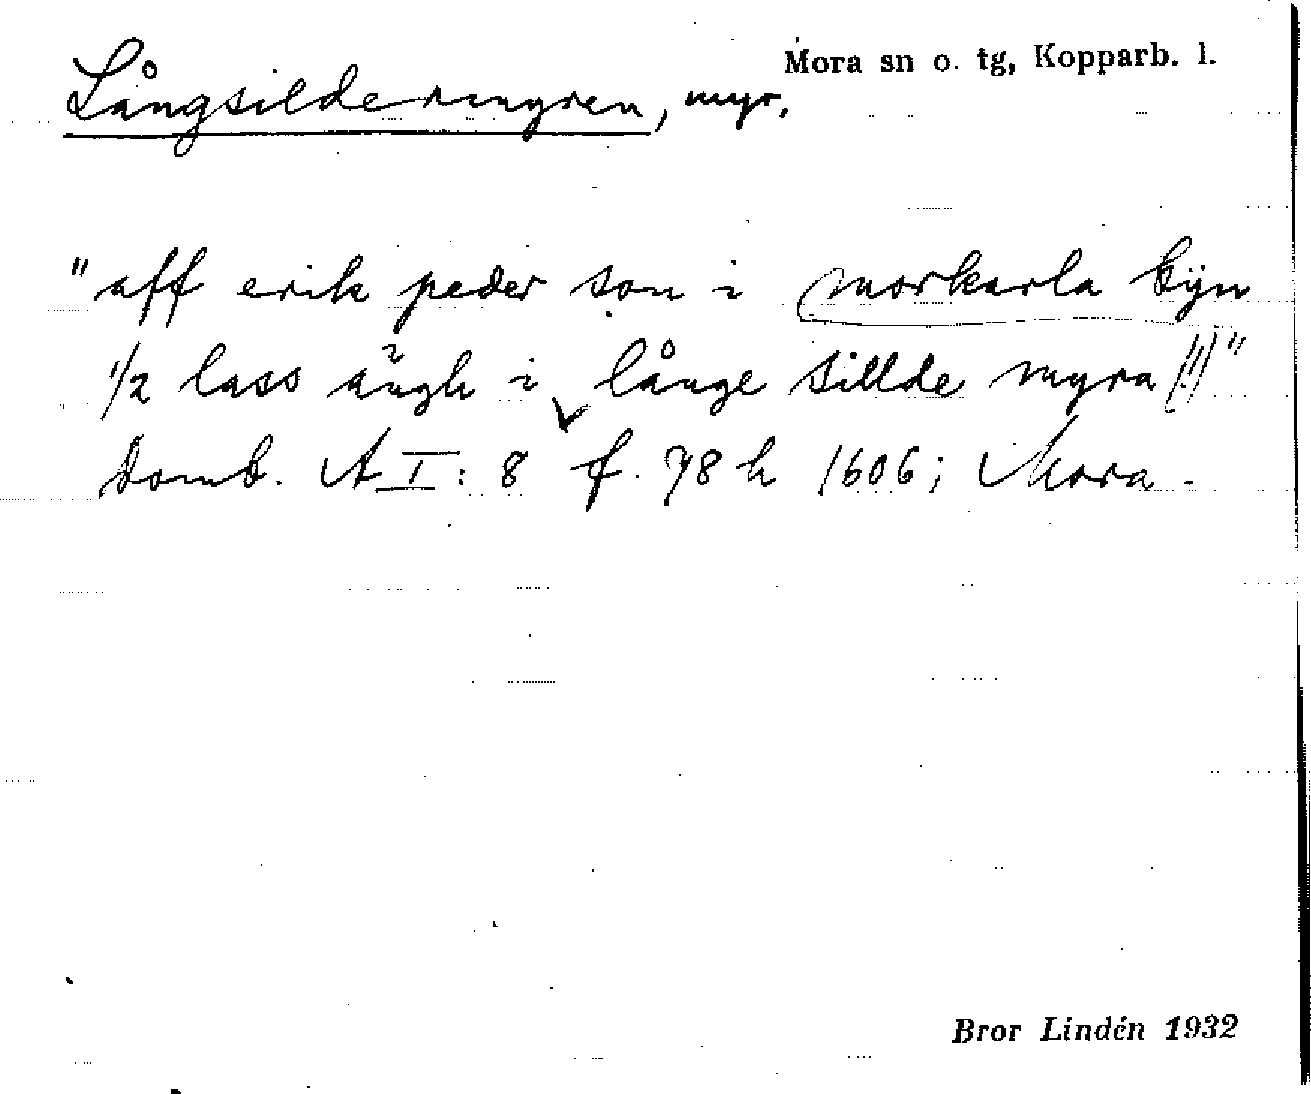 Mora sn o. tg, Kopparb. l.
Långsildermyren, myr.
"aff erik peder son i morkarla byn
1/2 lass ängh i långe sillde myra (!)"
Domb. A I: 8 f. 78 h 1606; Mora.
Bror Lindén 1932